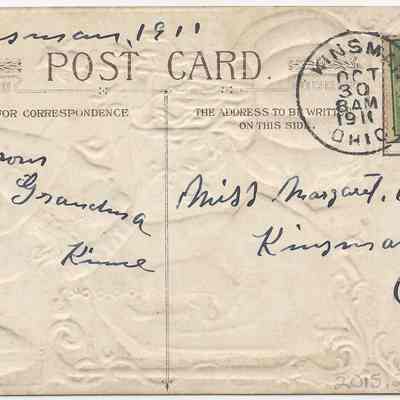 nsman, 1911
POST CARD.
FOR CORRESPONDENCE
THE ADDRESS TO BE WRITTEN
ON THIS SIDE.
KINSMA
OCT
30
8 AM
1911
OHIO
from
Grandma
Kinne
Miss Margaret
Kinsma
O
2015.